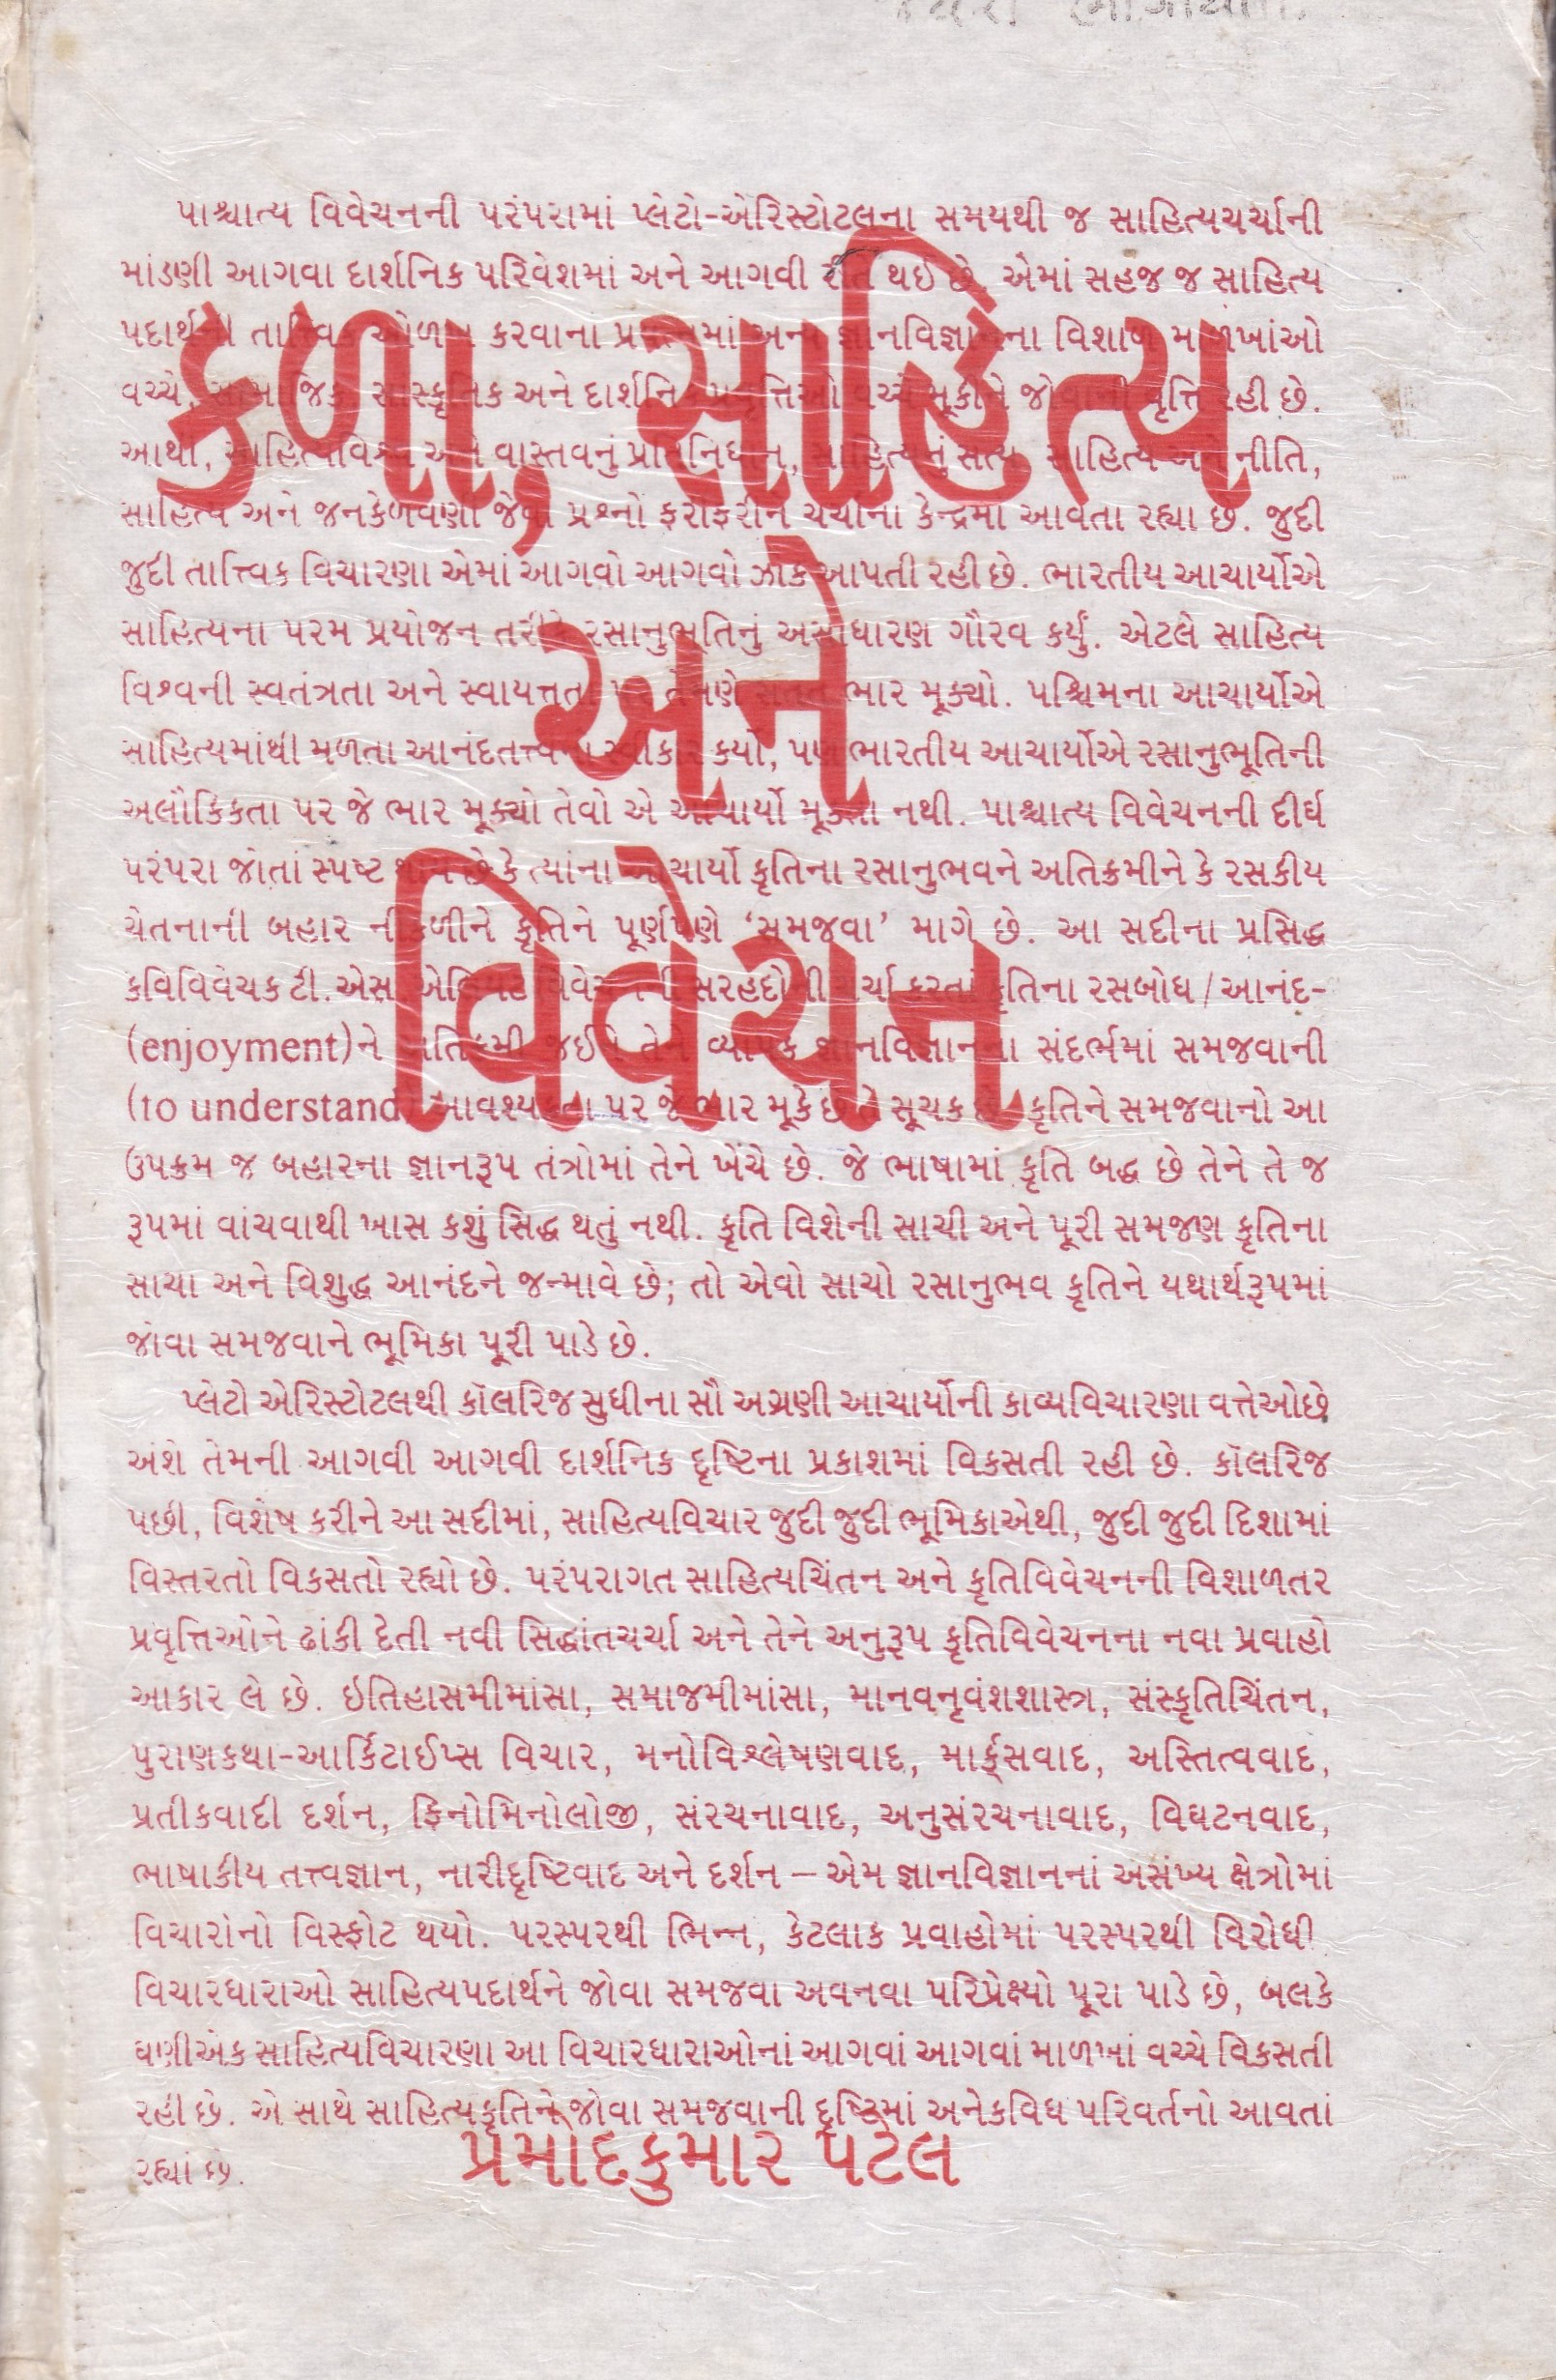 પાશ્ચાત્ય વિવેચનની પરંપરામાં પ્લેટો-એરિસ્ટોટલના સમયથી જ સાહિત્યચર્ચાની
માંડણી આગવા દાર્શનિક પરિવેશમાં અને આગવી રીતે થઈ છે. એમાં સહજ જ સાહિત્ય
કરવાના વિશાળ
વચ્ચે, અને જોવાની વૃત્તિ રહી છે.
આથી, વાસ્તવનું નીતિ,
સાહિત્ય અને જનકેળવણી જેવા પ્રશ્નો ફરીફરીને ચર્ચાના કેન્દ્રમાં આવતા રહ્યા છે. જુદી
જુદી તાત્ત્વિક વિચારણા એમાં આગવો આગવો ઝોક આપતી રહી છે. ભારતીય આચાર્યોએ
સાહિત્યના પરમ પ્રયોજન તરીકે રસાનુભૂતિનું અસાધારણ ગૌરવ કર્યું. એટલે સાહિત્ય
વિશ્વની સ્વતંત્રતા અને સ્વાયત્તતા પર તેમણે સતત ભાર મૂક્યો. પશ્ચિમના આચાર્યોએ
સાહિત્યમાંથી મળતા આનંદતત્ત્વનો સ્વીકાર કર્યો, પણ ભારતીય આચાર્યોએ રસાનુભૂતિની
અલૌકિકતા પર જે ભાર મૂક્યો તેવો એ આચાર્યો મૂકતા નથી. પાશ્ચાત્ય વિવેચનની દીર્ઘ
પરંપરા જોતાં સ્પષ્ટ થાય છે કે ત્યાંના આચાર્યો કૃતિના રસાનુભવને અતિક્રમીને કે રસકીય
ચેતનાની બહાર નીકળીને કૃતિને પૂર્ણપણે ‘સમજવા’ માગે છે. આ સદીના પ્રસિદ્ધ
કવિવિવેચક ટી. એસ. એલિયટ વિવેચનની સરહદોની ચર્ચા કરતાં કૃતિના રસબોધ / આનંદ-
(enjoyment)ને અતિક્રમી જઈને તેને વ્યાપક જ્ઞાનવિજ્ઞાનના સંદર્ભમાં સમજવાની
(to understand) આવશ્યકતા પર જે ભાર મૂકે છે તે સૂચક છે. કૃતિને સમજવાનો આ
ઉપક્રમ જ બહારના જ્ઞાનરૂપ તંત્રોમાં તેને ખેંચે છે. જે ભાષામાં કૃતિ બદ્ધ છે તેને તે જ
રૂપમાં વાંચવાથી ખાસ કશું સિદ્ધ થતું નથી. કૃતિ વિશેની સાચી અને પૂરી સમજણ કૃતિના
સાચા અને વિશુદ્ધ આનંદને જન્માવે છે; તો એવો સાચો રસાનુભવ કૃતિને યથાર્થરૂપમાં
જોવા સમજવાને ભૂમિકા પૂરી પાડે છે.
કળા, સાહિત્ય
અને
વિવેચન
પ્લેટો એરિસ્ટોટલથી કૉલરિજ સુધીના સૌ અગ્રણી આચાર્યોની કાવ્યવિચારણા વત્તેઓછે
અંશે તેમની આગવી આગવી દાર્શનિક દૃષ્ટિના પ્રકાશમાં વિકસતી રહી છે. કૉલરિજ
પછી, વિશેષ કરીને આ સદીમાં, સાહિત્યવિચાર જુદી જુદી ભૂમિકાએથી, જુદી જુદી દિશામાં
વિસ્તરતો વિકસતો રહ્યો છે. પરંપરાગત સાહિત્યચિંતન અને કૃતિવિવેચનની વિશાળતર
પ્રવૃત્તિઓને ઢાંકી દેતી નવી સિદ્ધાંતચર્ચા અને તેને અનુરૂપ કૃતિવિવેચનના નવા પ્રવાહો
આકાર લે છે. ઇતિહાસમીમાંસા, સમાજમીમાંસા, માનવનૃવંશશાસ્ત્ર, સંસ્કૃતિચિંતન,
પુરાણકથા-આર્કિટાઈપ્સ વિચાર, મનોવિશ્લેષણવાદ, માર્ક્સવાદ, અસ્તિત્વવાદ,
પ્રતીકવાદી દર્શન, ફિનોમિનોલોજી, સંરચનાવાદ, અનુસંરચનાવાદ, વિઘટનવાદ,
ભાષાકીય તત્ત્વજ્ઞાન, નારીદૃષ્ટિવાદ અને દર્શન – એમ જ્ઞાનવિજ્ઞાનનાં અસંખ્ય ક્ષેત્રોમાં
વિચારોનો વિસ્ફોટ થયો. પરસ્પરથી ભિન્ન, કેટલાક પ્રવાહોમાં પરસ્પરથી વિરોધી
વિચારધારાઓ સાહિત્યપદાર્થને જોવા સમજવા અવનવા પરિપ્રેક્ષ્યો પૂરા પાડે છે, બલકે
ઘણીએક સાહિત્યવિચારણા આ વિચારધારાઓનાં આગવાં આગવાં માળખાં વચ્ચે વિકસતી
રહી છે. એ સાથે સાહિત્યકૃતિને જોવા સમજવાની દૃષ્ટિમાં અનેકવિધ પરિવર્તનો આવતાં
રહ્યાં છે.
પ્રમોદકુમાર પટેલ